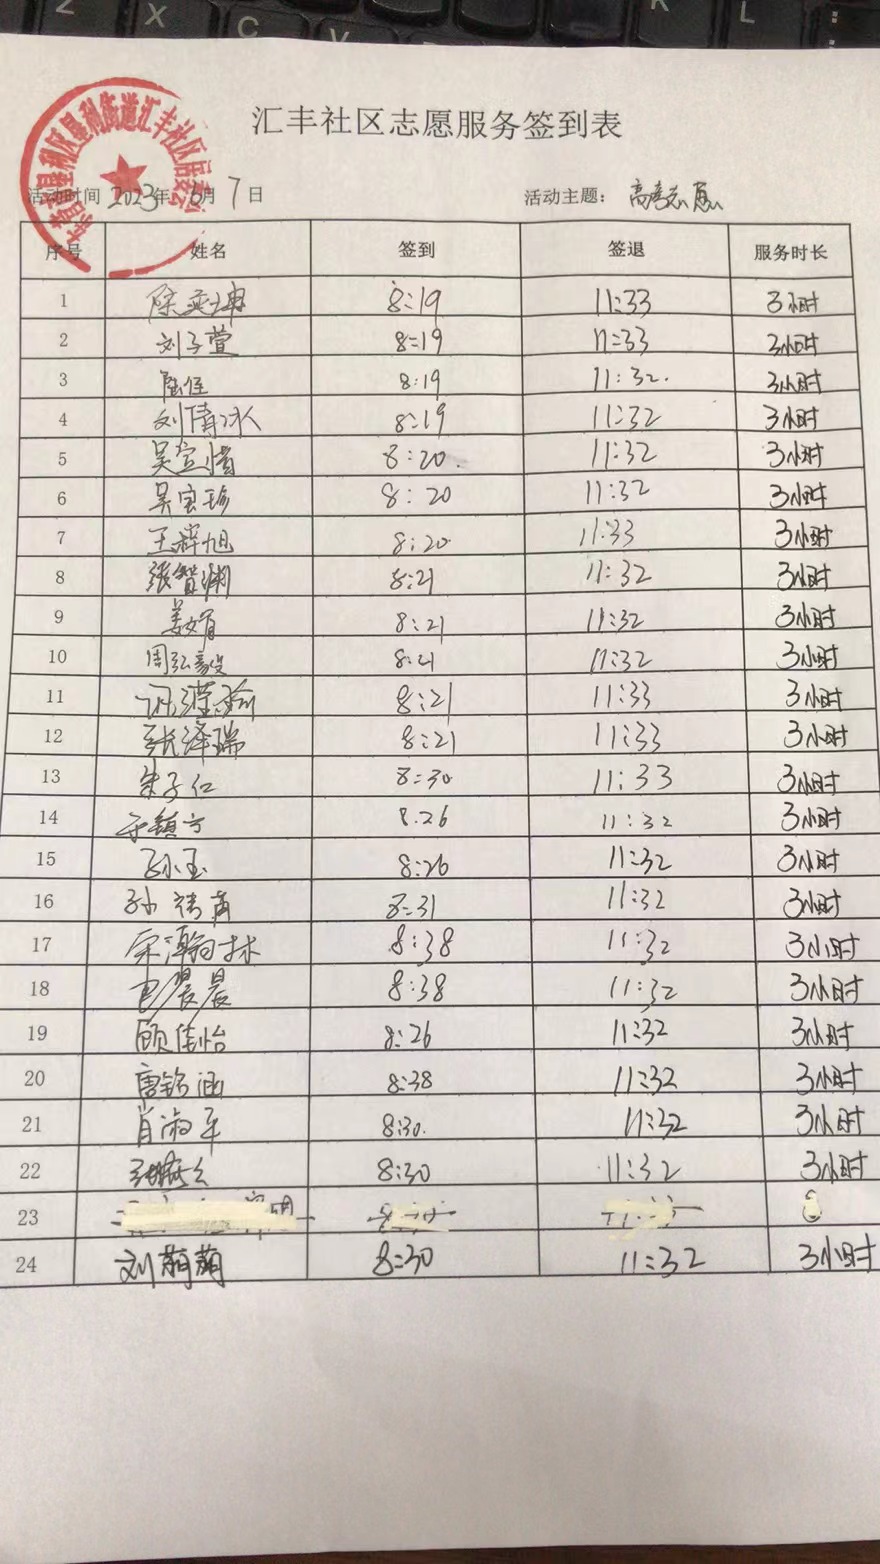 Z X C V K L
汇丰社区志愿服务签到表
垦利区垦利街道汇丰社区居委会
活动时间 2023年 6月 7日 活动主题： 高考志愿
序号 姓名 签到 签退 服务时长
1 陈奕坤 8:19 11:33 3小时
2 刘子萱 8:19 11:33 3小时
3 陆佳 8:19 11:32. 3小时
4 刘倩冰 8:19 11:32 3小时
5 吴萱情 8:20. 11:32 3小时
6 吴宝瑜 8:20 11:32 3小时
7 王梓旭 8:20 11:33 3小时
8 张智渊 8:21 11:32 3小时
9 姜女肖 8:21 11:32 3小时
10 周弘毅 8:21 11:32 3小时
11 8:21 11:33 3小时
12 张泽瑞 8:21 11:33 3小时
13 朱子仁 8:30 11:33 3小时
14 8.26 11:32 3小时
15 孙玉 8:26 11:32 3小时
16 孙 8:31 11:32 3小时
17 宋瀚林 8:38 11:32 3小时
18 晨晨 8:38 11:32 3小时
19 顾佳怡 8:26 11:32 3小时
20 唐铭涵 8:38 11:32 3小时
21 肖淑平 8:30. 11:32 3小时
22 8:30 11:32 3小时
23
24 刘萌萌 8:30 11:32 3小时